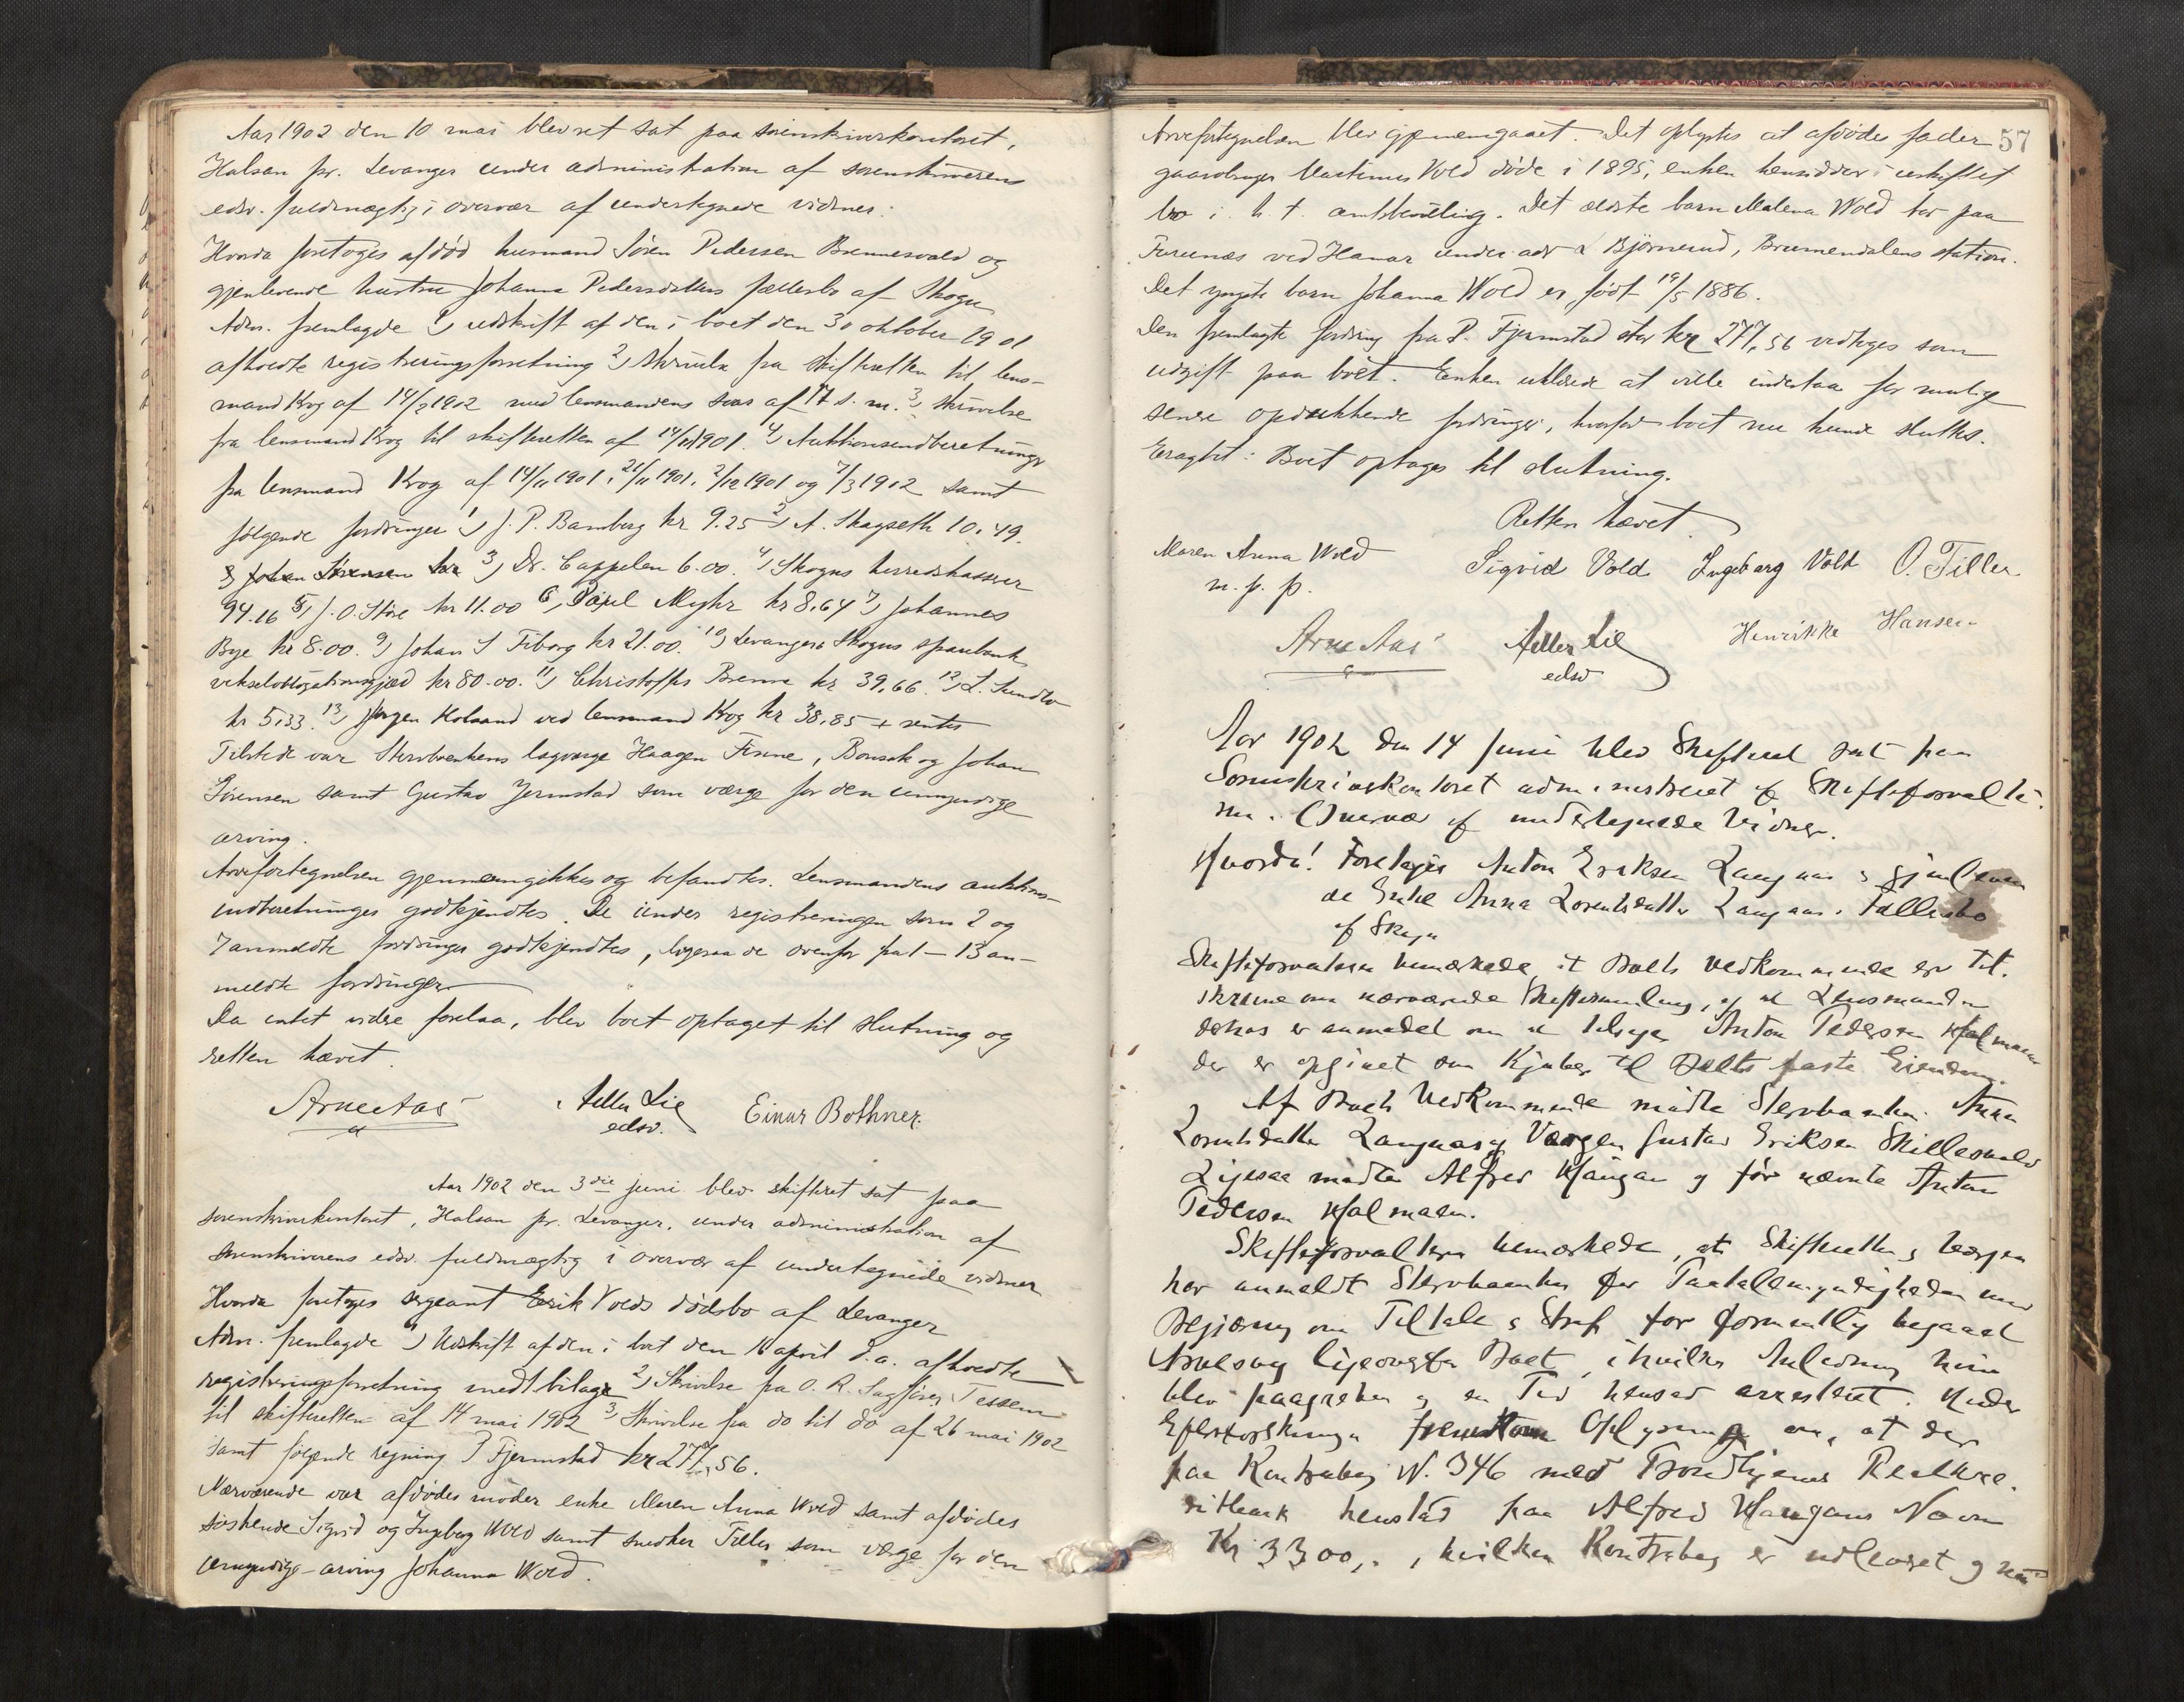 Aar 1902 den 10 mai blev ret sat paa sorenskriverkontoret,
Halsan pr. Levanger under administration af sorenskriverens
edsv. fuldmægtig i overvær af undertegnede vidner:
Hvorda foretoges afdød husmand Sören Pedersen Brennesvald og
gjenlevende hustru Johanna Pedersdatters fællesbo af Skogn
Adm. fremlagde 1) udskrift af den i boet den 30 oktober 1901
afholdte registreringsforretning 2) skrivelse fra skifteretten til lens-
mand Krog af 14/3 1902 med lensmandens svar af 17 s. m. 3) skrivelse
fra lensmand Krog til skifteretten af 14/11 1901. 4) Auktionsindberetninger
fra lensmand Krog af 14/11 1901, 21/11 1901, 2/12 1901 og 7/3 1902 samt
følgende fordringer 1) J. P. Bamberg kr 9.25 2) A. Skagseth 10,49.
3) Johan Sörensen kr 3) Dr. Cappelen 6.00. 4) Skogns herredskasserer
94.16 5) J. O. Störe kr 11.00 6) Paul Myhr kr 8,64 7) Johannes
Bye kr 8.00. 9) Johan S Fiborg kr 21.00. 10) Levanger & Skogns sparebank
vekselobligationsgjæld kr 80.00. 11) Christoffer Brenne kr 39,66. 12) L. Sundbo
kr 5,33. 13) Jørgen Holsand ved lensmand Krog kr 38,85 + renter
Tilstede var Stervboenkens lagværge Haagen Finne, Bonsak og Johan
Sörensen samt Gustav Jermstad som værge for den umyndige
arving.
Arvefortegnelsen gjennemgikkes og befandtes. Lensmandens auktions-
indberetninger godkjendtes. De under registreringen som 2 og
7 anmeldte fordringer godkjendtes, ligesaa de ovenfor fra 1 – 13 an-
meldte fordringer.
Da intet videre forelaa, blev boet optaget til slutning og
retten hævet.
Arne Aas Adler Lie Einar Bothner.
edsv.
Aar 1902 den 3die juni blev skifteret sat paa
sorenskriverkontoret, Halsan pr. Levanger, under administration af
sorenskriverens edsv. fuldmægtig i overvær af undertegnede vidner
Hvorda foretoges sergeant Erik Volds dödsbo af Levanger
Adm. fremlagde 1) Udskrift af den i boet den 18 april d.a. afholdte
registreringsforretning med 1 bilage 2) Skrivelse fra O. R. Sagfører Tessem
til skifteretten af 14 mai 1902 3) Skrivelse fra do til do af 26 mai 1902
samt følgende regning P Fjermstad kr 277,56.
Nærværende var afdødes moder enke Maren Anna Wold samt afdødes
söskende Sigrid og Ingeborg Wold samt snedker Tiller som værge for den
umyndige arving Johanna Wold.
57
Arvefortegnelsen blev gjennemgaaet. Det oplystes at afdødes fader
gaardbruger Martinus Vold döde i 1895, enken hensidder i uskiftet
bo i h. t. amtsbevilling. Det ældste barn Malena Wold bor paa
Furunæs ved Hamar under adr L Björnerud, Brumendalens station.
Det yngste barn Johanna Wold er född 19/5 1886.
Den fremlagte fordring fra P. Fjermstad stor kr 277,56 vedtoges som
udgift paa boet. Enken erklærede at ville indestaa for mulig
senere opdukkende fordringer, hvorfor boet nu kunde sluttes.
Eragtet: Boet optages til slutning.
Retten hævet.
Maren Anna Wold Sigrid Vold Ingeborg Vold O. Tiller
m. p. p.
Arne Aas Adler Lie Henrikke Hansen
edsv
Aar 1902 den 14 Juni blev Skifteret sat paa
Sorenskriverkontoret administreret af Skifteforvalte-
ren. Overvær af undertegnede Vidner.
Hvorda! Foretoges Anton Eriksen Langaas & gjenleven
de Enke Anna Lorentsdatter Langaas. Fællesbo
af Skogn
Skifteforvalteren bemærkede, at Boets Vedkommende er til-
skrevne om nærværende Skiftesamling, og at Lensmanden
er anmodet om at tilsige Anton Pedersen Hjalmaren
der er opgivet som Kjøber til Boets faste Eiendom.
Af Boets Vedkommende mødte Stervboenken Anna
Lorentsdatter Langaas og Værgen Gustav Eriksen Skillesvald
Ligesaa mødte Alfred Haugan og før nævnte Anton
Pedersen Hjalmaren.
Skifteforvalteren bemærkede, at Skifteretten & Værgen
har anmeldt Stervboenken for Paatalemyndigheden med
Begjæring om Tiltale & Straf for formentlig begaaet
Besvig ligeoverfor Boet, i hvilken Anledning hun
blev paagreben og en Tid hensad arresteret. Under
Efterforskningen fremkom Oplysning om, at der
paa Kontrabog N. 346 med Trondhjems Realkre-
ditbank henstod paa Alfred Haugans Navn
Kr 3300,-, hvilken Kontrabog er udleveret og